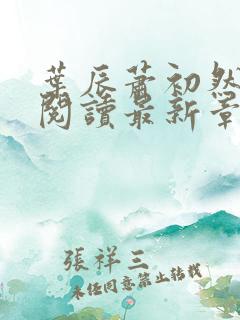 葉辰蕭初然
閱讀最新章
張祥三
未經同意禁止轉載